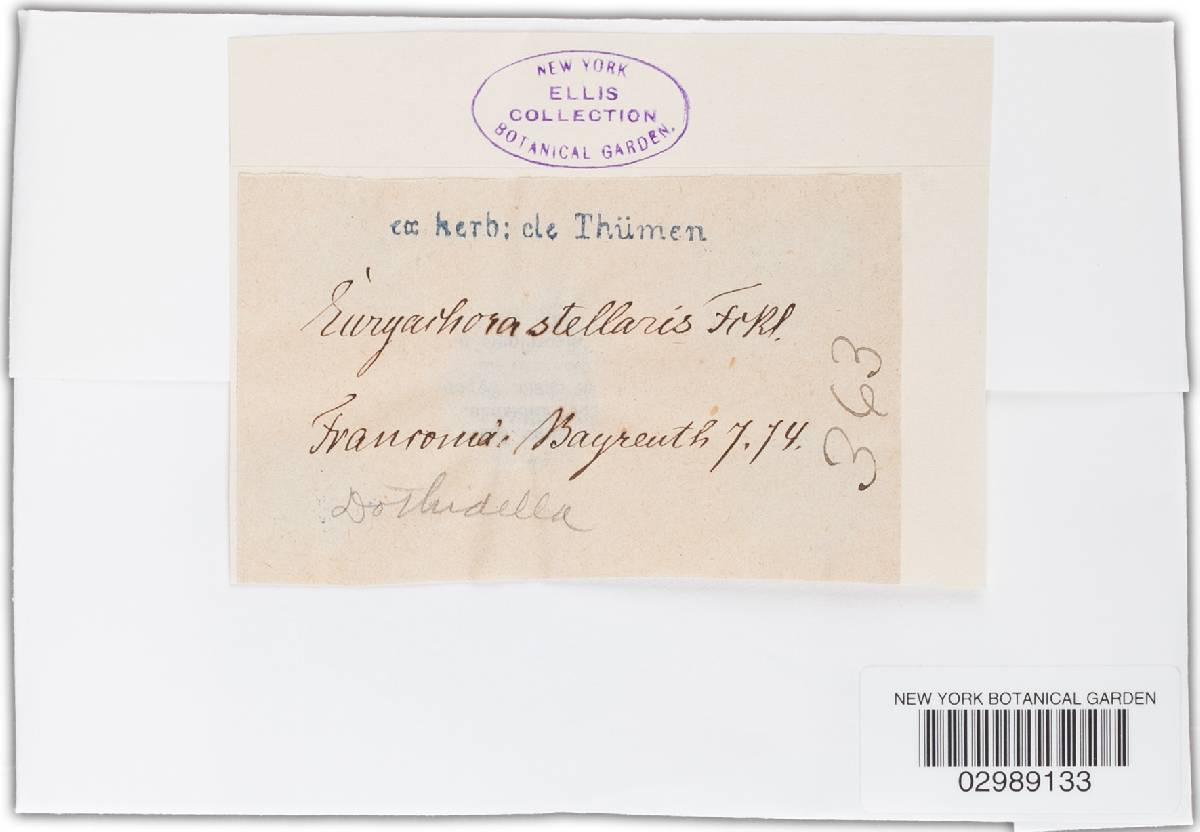 NEW YORK
ELLIS
COLLECTION
BOTANICAL GARDEN.
ex herb; de Thümen
Euryachora stellaris Fckl.
Franconia: Bayreuth 7.74.
Dothidella
363
NEW YORK BOTANICAL GARDEN
02989133